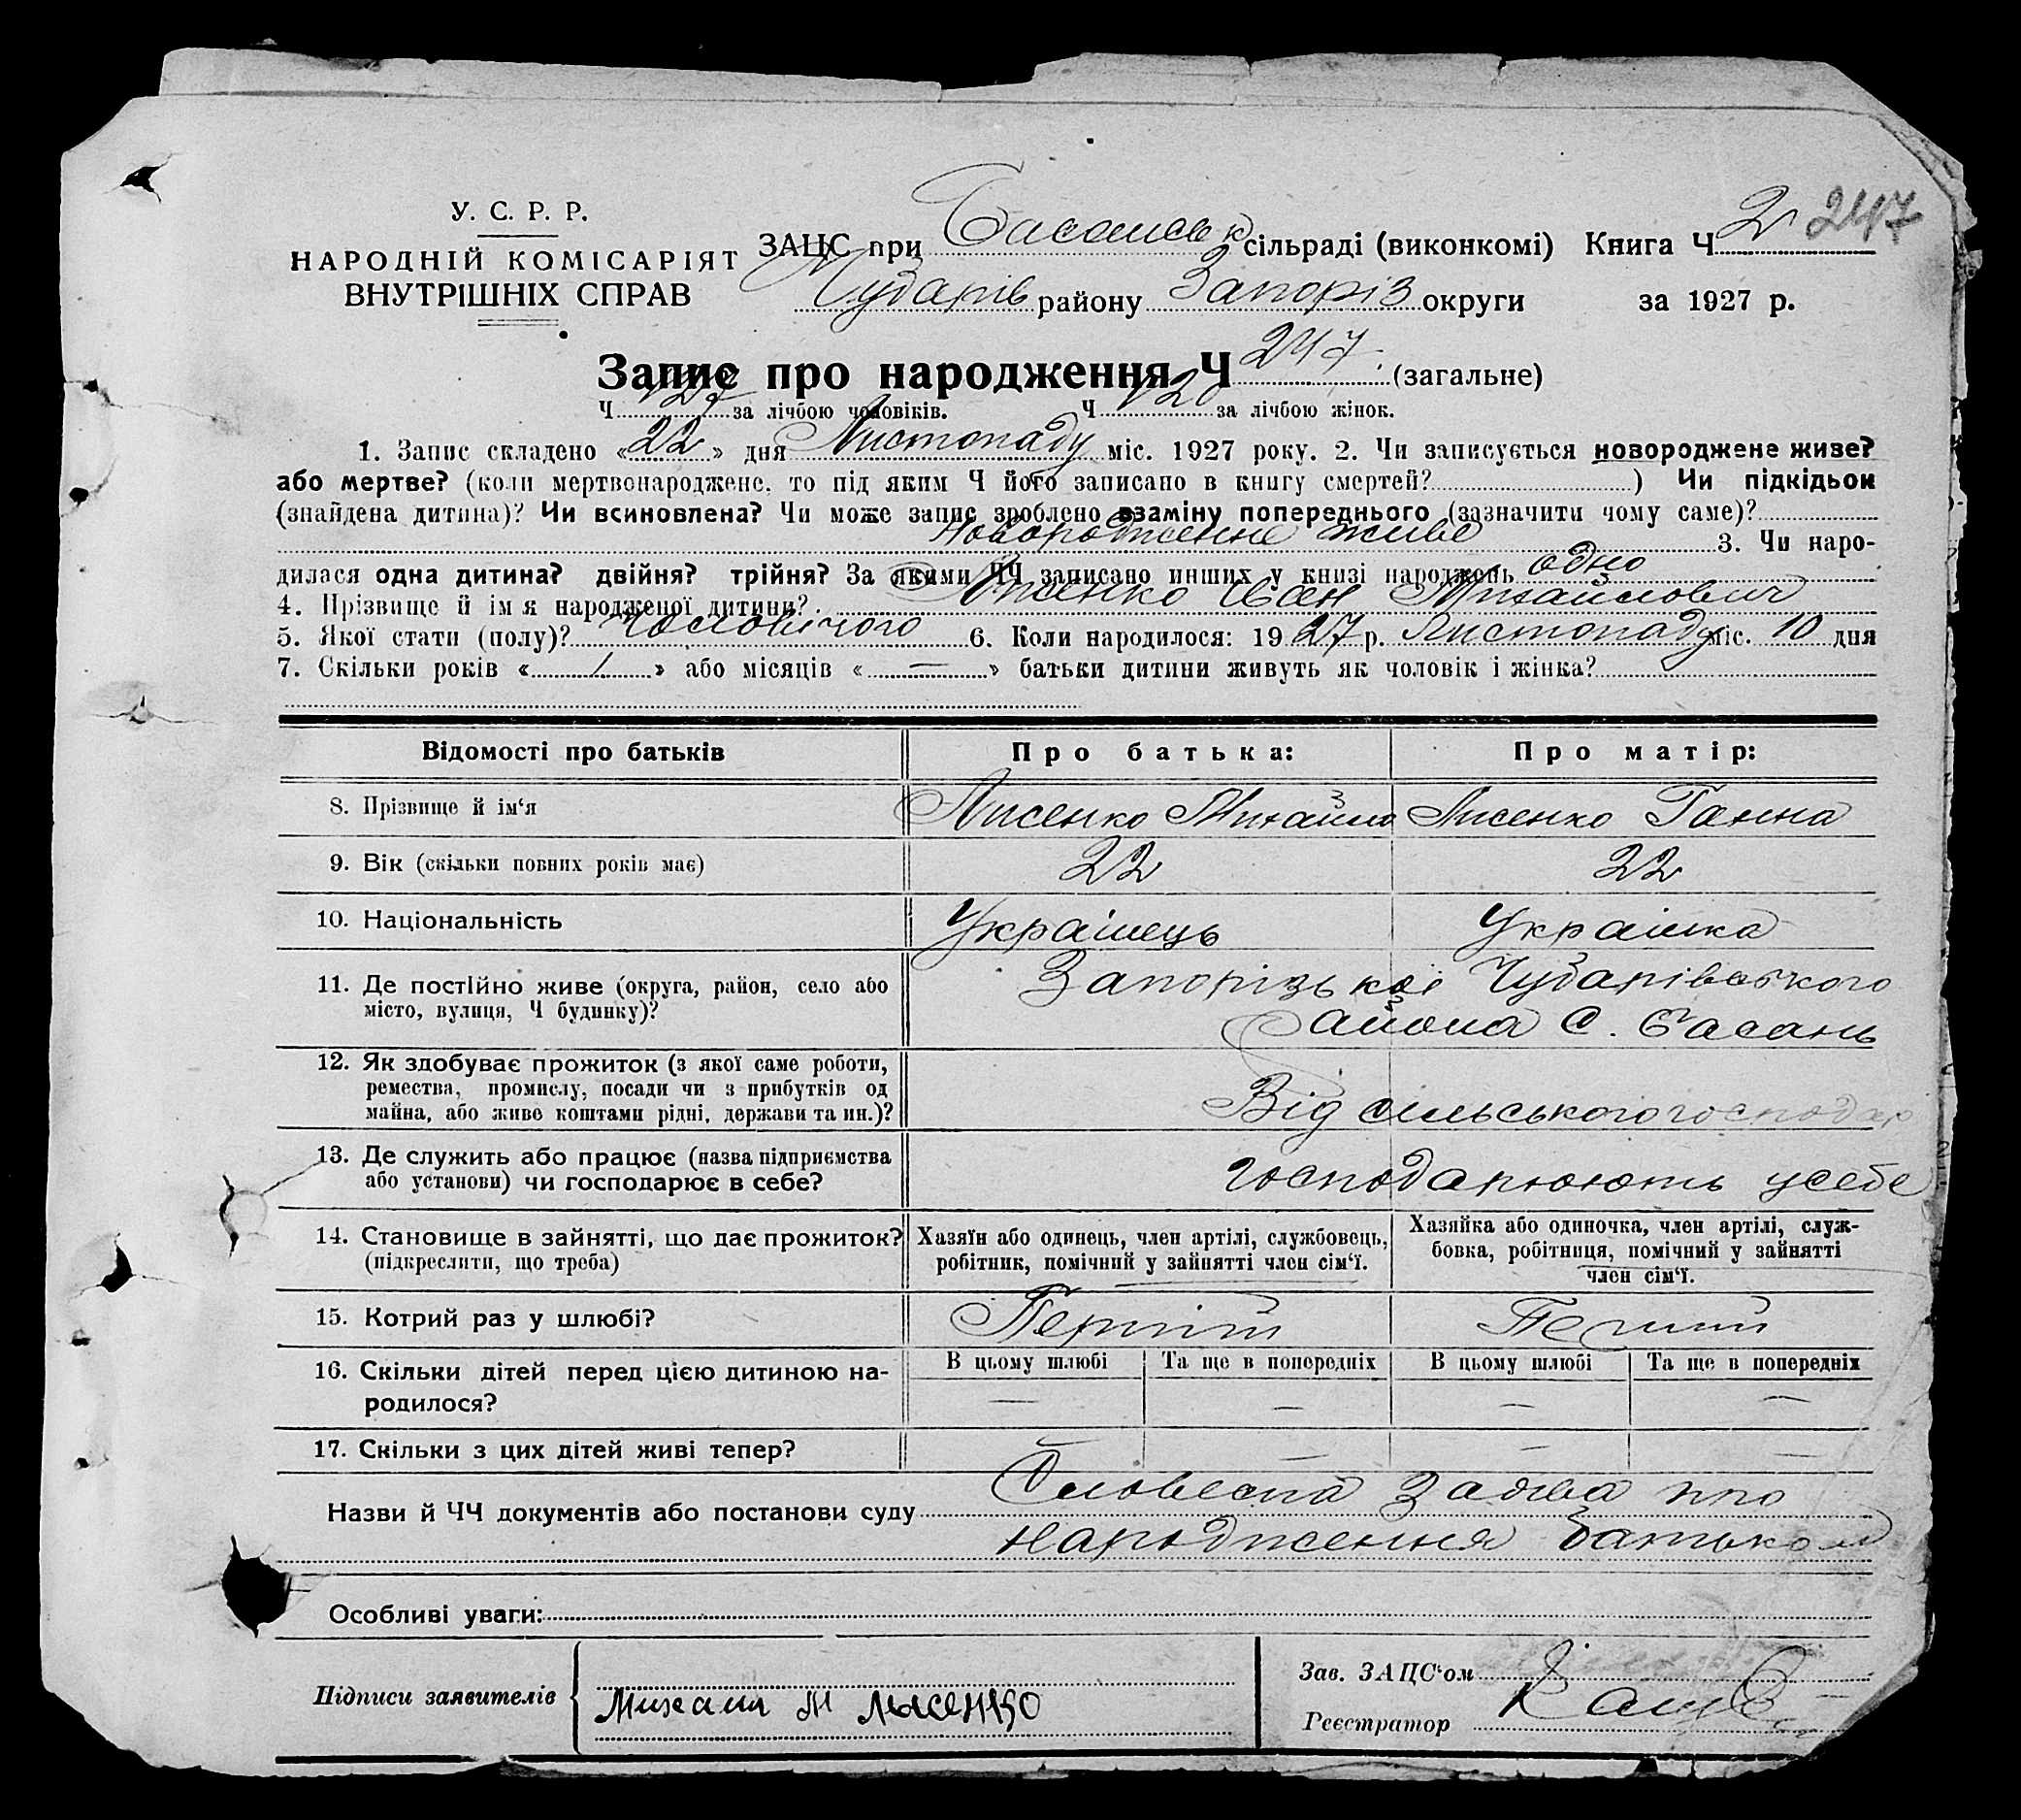 У. С. Р. Р.
НАРОДНІЙ КОМІСАРІЯТ
ВНУТРІШНІХ СПРАВ
ЗАЦС при Басанськ сільраді (виконкомі) Книга Ч 2 247
Чубарів району Запоріз округи за 1927 р.
Запис про народження Ч 247 (загальне)
Ч 127 за лічбою чоловіків. Ч 120 за лічбою жінок.
1. Запис складено «22» дня Листопаду міс. 1927 року. 2. Чи записується новороджене живе?
або мертве? (коли мертвонароджене, то під яким Ч його записано в книгу смертей? ) Чи підкідьок
(знайдена дитина)? Чи всиновлена? Чи може запис зроблено взаміну попереднього (зазначити чому саме)?
Новородженне живе 3. Чи наро-
дилася одна дитина? двійня? трійня? За якими ЧЧ записано инших у книзі народжень одно
4. Прізвище й ім я народженої дитини? Лисенко Іван Михайлович
5. Якої стати (полу)? Чоловічого 6. Коли народилося: 1927 р. Листопаду міс. 10 дня
7. Скільки років « 1 » або місяців « — » батьки дитини живуть як чоловік і жінка?
Відомості про батьків Про батька: Про матір:
8. Прізвище й ім'я Лисенко Михайло Лисенко Ганна
9. Вік (скільки повних років має) 22 22
10. Національність Українець Українка
11. Де постійно живе (округа, район, село або Запорізької Чубарівського
місто, вулиця, Ч будинку)? Района С. Басань
12. Як здобуває прожиток (з якої саме роботи,
ремества, промислу, посади чи з прибутків од
майна, або живе коштами рідні, держави та ин.)? Від сільського господар
13. Де служить або працює (назва підприємства
або установи) чи господарює в себе? господарюють усебе
14. Становище в зайнятті, що дає прожиток? Хазяїн або одинець, член артілі, службовець, Хазяйка або одиночка, член артілі, служ-
(підкреслити, що треба) робітник, помічний у зайнятті член сім'ї. бовка, робітниця, помічний у зайнятті
член сім'ї.
15. Котрий раз у шлюбі? Перший Перший
16. Скільки дітей перед цією дитиною на- В цьому шлюбі Та ще в попередніх В цьому шлюбі Та ще в попередніх
родилося? — — — —
17. Скільки з цих дітей живі тепер? — — — —
Назви й ЧЧ документів або постанови суду Словесна Заява про
народження батьком
Особливі уваги:
Підписи заявителів Михаил М Лысенко
Зав. ЗАЦС'ом
Реєстратор